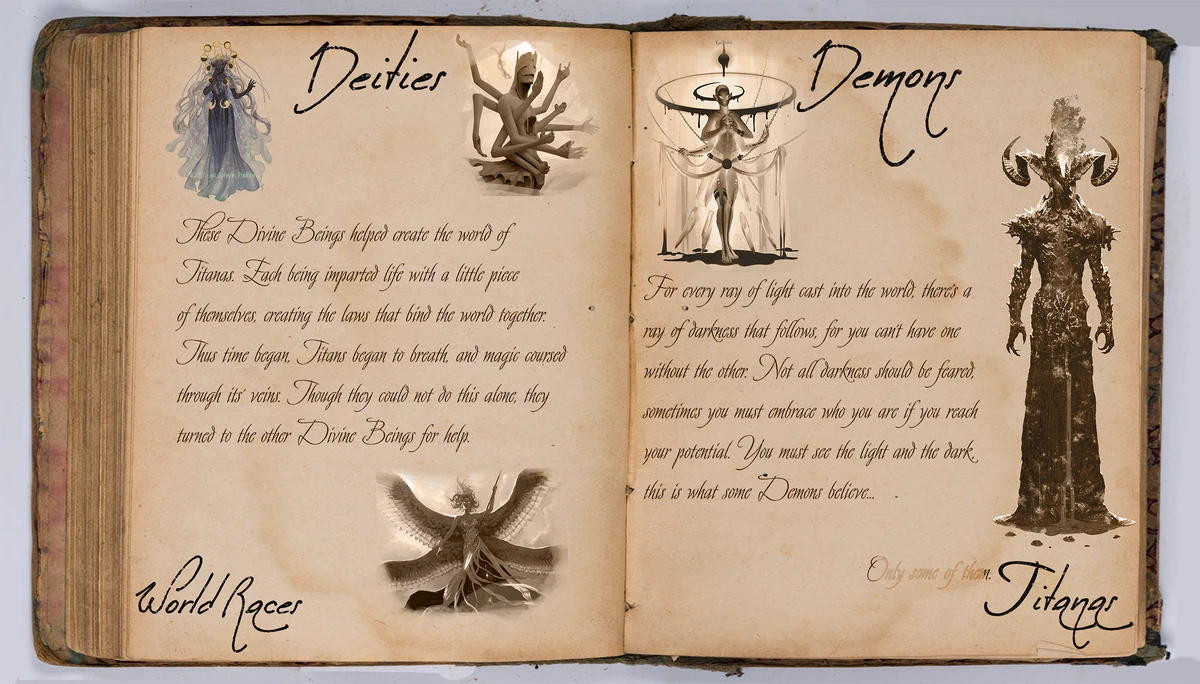 Deities
These Divine Beings helped create the world of
Titanas. Each being imparted life with a little piece
of themselves, creating the laws that bind the world together.
Thus time began, Titans began to breath, and magic coursed
through its' veins. Though they could not do this alone, they
turned to the other Divine Beings for help.
World Races
Demons
For every ray of light cast into the world, there's a
ray of darkness that follows, for you can't have one
without the other. Not all darkness should be feared,
sometimes you must embrace who you are if you reach
your potential. You must see the light and the dark,
this is what some Demons believe...
Only some of them.
Titanas